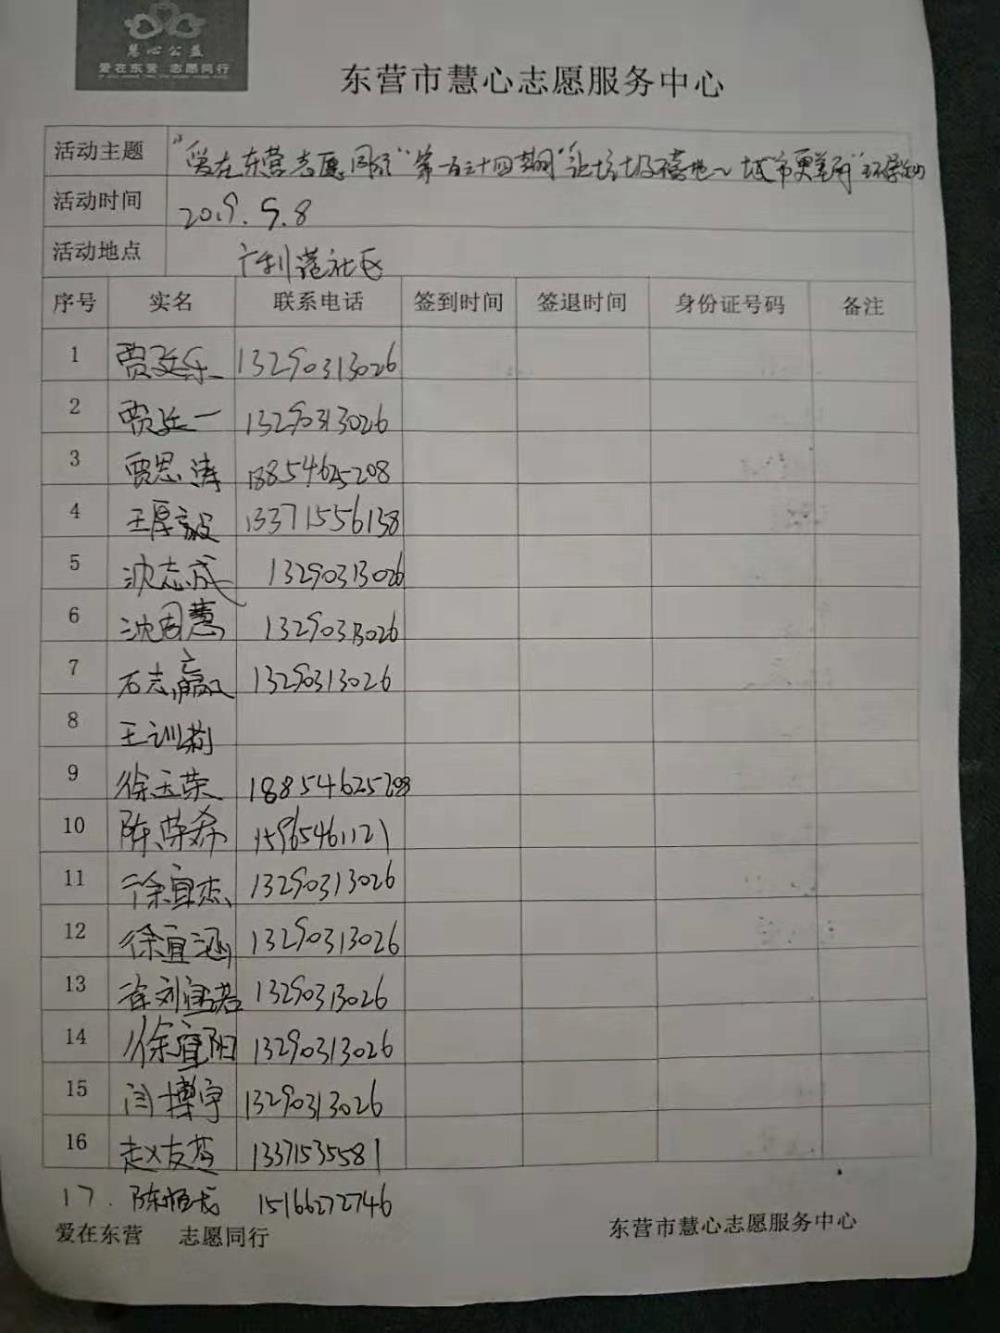 慧心公益
爱在东营 志愿同行
东营市慧心志愿服务中心
活动主题 "爱在东营志愿同行"第一百三十四期"让垃圾落地~城市更美丽"环保活动
活动时间 2019.9.8
活动地点 广利港社区
序号 实名 联系电话 签到时间 签退时间 身份证号码 备注
1 贾廷乐 13290313026
2 贾廷一 13290313026
3 贾思涛 18854625208
4 王厚毅 13371556138
5 沈志成 13290313026
6 沈国慧 13290313026
7 石志赢 13290313026
8 王训莉
9 徐玉荣 18854625208
10 陈荣希 15965461121
11 徐宜杰 13290313026
12 徐宜涵 13290313026
13 徐刘宜若 13290313026
14 徐宜阳 13290313026
15 闫博宇 13290313026
16 赵友芬 13371535581
17. 陈恒 15166272746
爱在东营 志愿同行 东营市慧心志愿服务中心